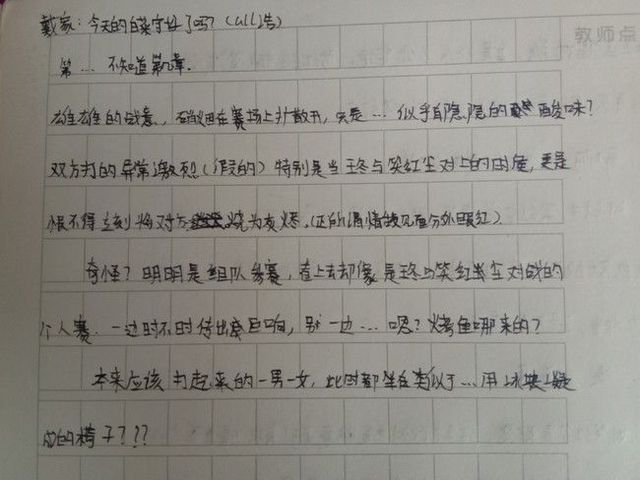 教师点
戴家:今天的白菜守好了吗?(all浩)
第…不知道第几章.
雄雄的战意,硝烟在赛场上扩散开,只是…似乎有隐隐的酸味?
双方打的异常激烈(假的)特别是当王冬与笑红尘对上的时候,更是
恨不得立刻将对方烧为灰烬.(正所谓情敌见面分外眼红)
奇怪?明明是组队参赛,看上去却像是王冬与笑红尘对战的
个人赛.一边时不时传出巨响,另一边…嗯?烤鱼哪来的?
本来应该打起来的一男一女,此时都坐在类似于…用冰块凝
成的椅子???